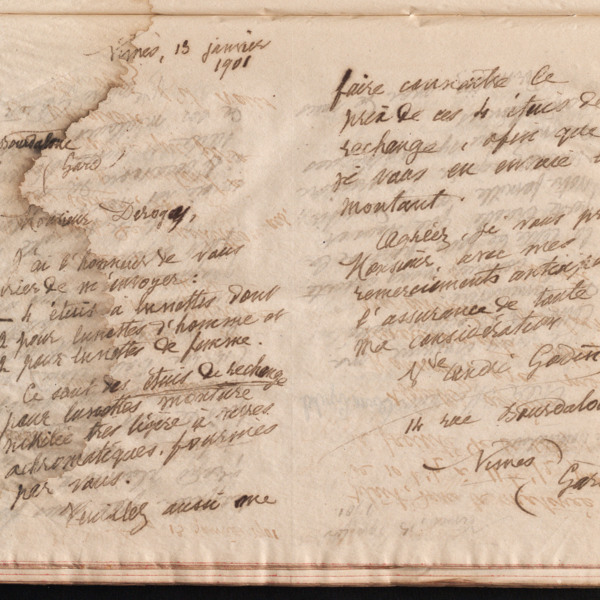 Nîmes, 13 janvier
1901
Bourdaloue
(Gard)
Monsieur Derogy,
J'ai l'honneur de vous
prier de m'envoyer :
4 étuis à lunettes dont
2 pour lunettes d'homme et
2 pour lunettes de femme.
Ce sont des étuis de rechange
pour lunettes monture
nickelée très légère à verres
achromatiques, fournies
par vous.
Veuillez aussi me
faire connaître le
prix de ces 4 étuis de
rechange, afin que
je vous en envoie
montant.
Agréez, je vous pr
Monsieur, avec mes
remerciements anticipé
l'assurance de toute
ma considération
Vve André Godin
14 rue Bourdalou
Nîmes
(Gar